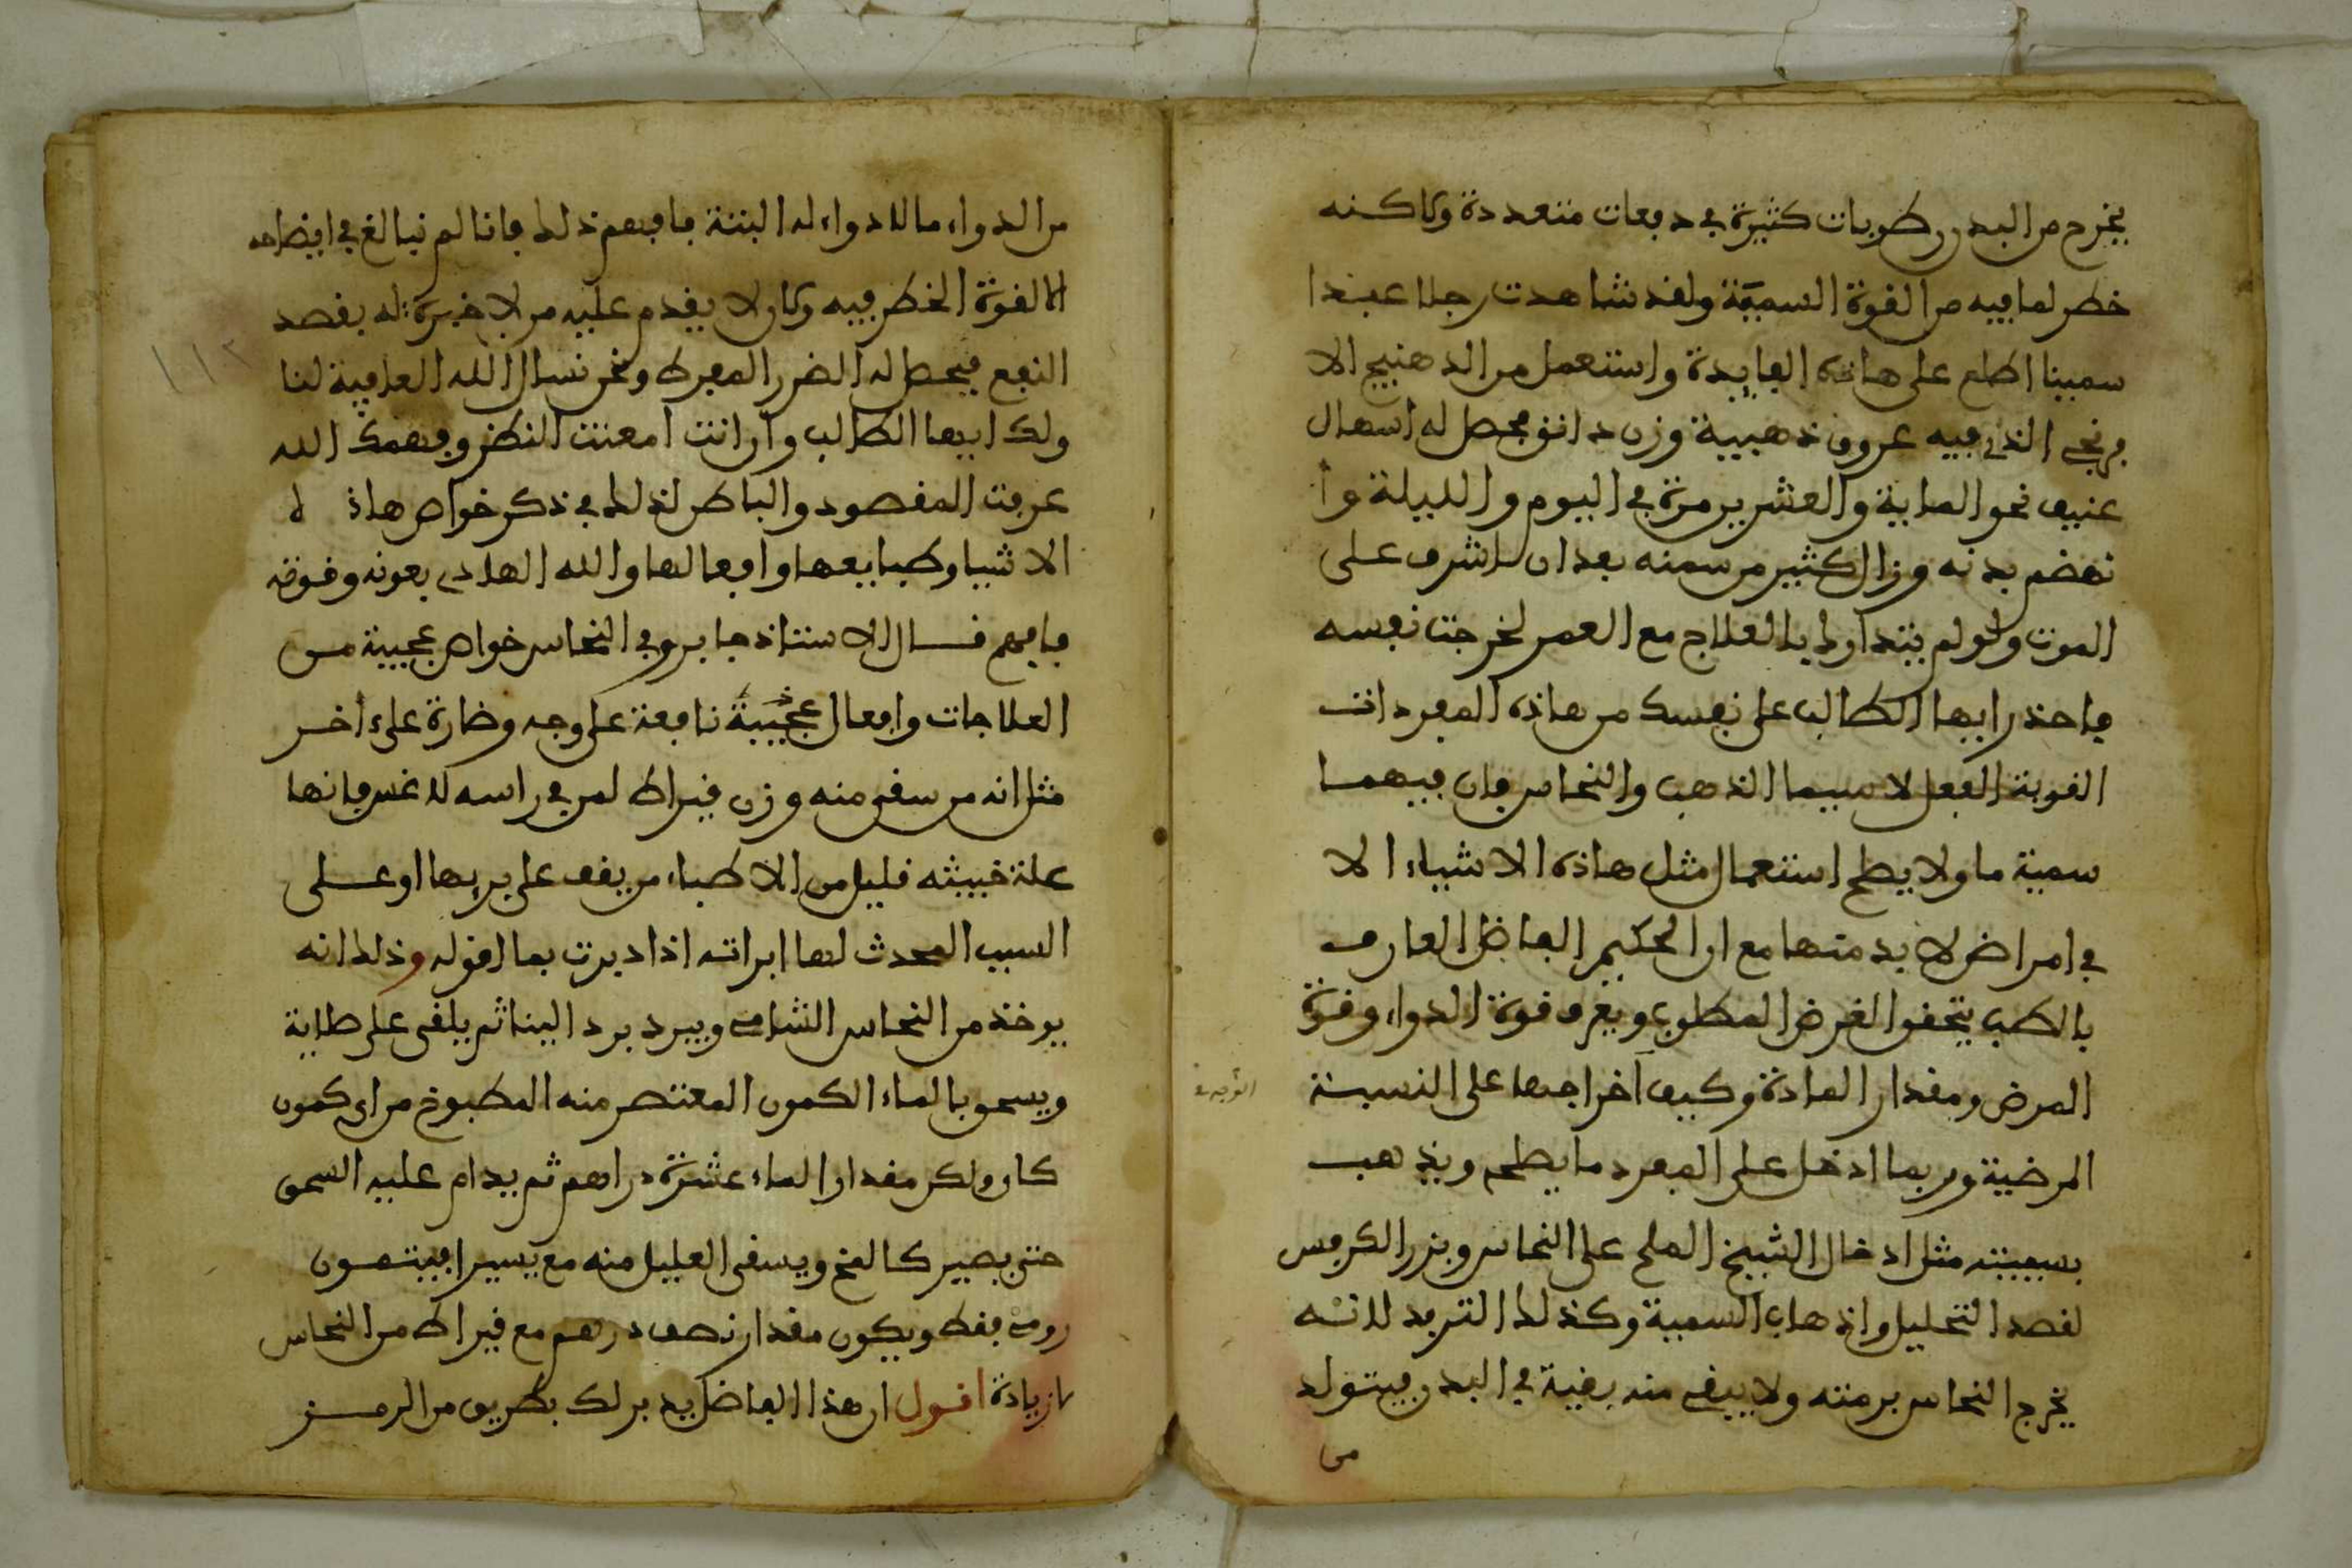 يخرج من البدن رطوبات كثيرة في دفعات متعددة ولاكنه
خطر لما فيه من القوة السمية ولقد شاهدت رجلا عبدا
سمينا اطلع على هاذه الفايدة واستعمل من الدهنيج الا
فرنجي الذي فيه عروق ذهبية وزن دانق فحصل له اسهال
عنيف نحو الماية والعشرين مرة في اليوم والليلة وا
نهضم بدنه وزال كثير من سمنه بعد ان اشرف على
الموت ولو لم يتدارك بالعلاج مع العمر لخرجت نفسه
فاحذر ايها الطالب على نفسك من هاذه المفردات
القوية الفعل لا سيما الذهب والنحاس فان فيهما
سمية ما ولا يصلح استعمال مثل هاذه الاشياء الا
في امراض لا بد منها مع ان الحكيم الفاضل العارف
بالطب يتحقق الغرض المطلوب ويعرف قوة الدواء وقوة
المرض ومقدار المادة وكيف اخراجها على النسبة
المرضية وربما ادخل على المفرد ما يصلحه ويذهب
بسميته مثل ادخال الشيخ الملح على النحاس وبزر الكرفس
لقصد التحليل واذهاب السمية وكذلك التربد لانه
يخرج النحاس برمته ولا يبقى منه بقية في البدن فيتولد
من
من الدواء ما لا دواء له البتة فافهم ذلك فانا لم نبالغ في ايضاحه
الا لقوة الخطر فيه وكان لا يقدم عليه من لا خبرة له بقصد
النفع فيحصل له الضرر المفرط ونحن نسال الله العافية لنا
ولك ايها الطالب وان انت امعنت النظر وفهمك الله
عرفت المقصود والباطن لذلك في ذكر خواص هاذ
الاشيا وطبايعها وافعالها والله الهادي بعونه وقوته
فافهم قال الاستاذ جابر وفي النحاس خواص عجيبة من
العلاجات وافعال عجيبة نافعة على وجه وضارة على ءاخر
مثل انه من سقي منه وزن قيراط لمن في راسه فانها
علة خبيثه قليل من الاطباء من يقف على بريها او على
السبب المحدث لها ابراته اذا ديرت بما اقوله وذلك انه
يوخذ من النحاس الشامي ويبرد بردا لينا ثم يلقى على صلاية
ويسحق بالماء الكمون المعتصر منه المطبوخ من اي كمون
كان وليكن مقدار الماء عشرة دراهم ثم يدام عليه السحق
حتى يصير كالمخ ويسقى العليل منه مع يسير افيتمون
رومي فقط ويكون مقدار نصف درهم مع قيراط من النحاس
لا زيادة اقول ان هذا الفاضل يدبر لك بطريق من الرمز